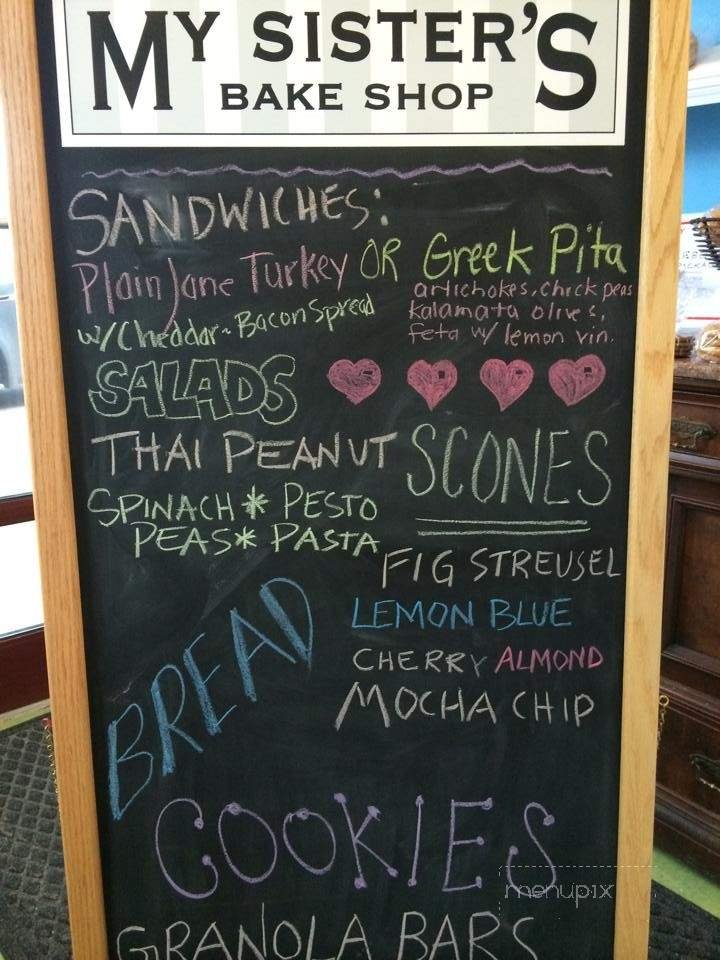 MY SISTER'S
BAKE SHOP
SANDWICHES:
Plain Jane Turkey OR Greek Pita
w/Cheddar-Bacon Spread
artichokes, chick peas
kalamata olives,
feta w/ lemon vin.
SALADS
THAI PEANUT
SPINACH * PESTO
PEAS * PASTA
SCONES
FIG STREUSEL
LEMON BLUE
CHERRY ALMOND
MOCHA CHIP
BREAD
COOKIES
GRANOLA BARS
menupix